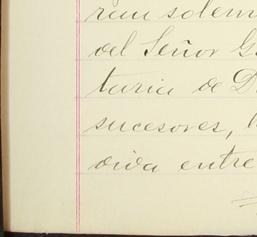 ran solem
del Señor G
taria de D
sucesores, l
viva entre